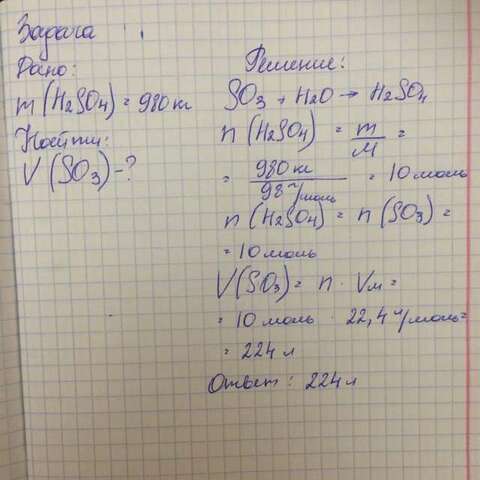 Задача
Дано:
m(H2SO4) = 980 кг
Найти:
V(SO3)-?
Решение:
SO3 + H2O → H2SO4
n(H2SO4) = m/M =
= 980 кг/98 г/моль = 10 моль
n(H2SO4) = n(SO3) =
= 10 моль
V(SO3) = n · Vm =
= 10 моль · 22,4 л/моль =
= 224 л
Ответ: 224 л